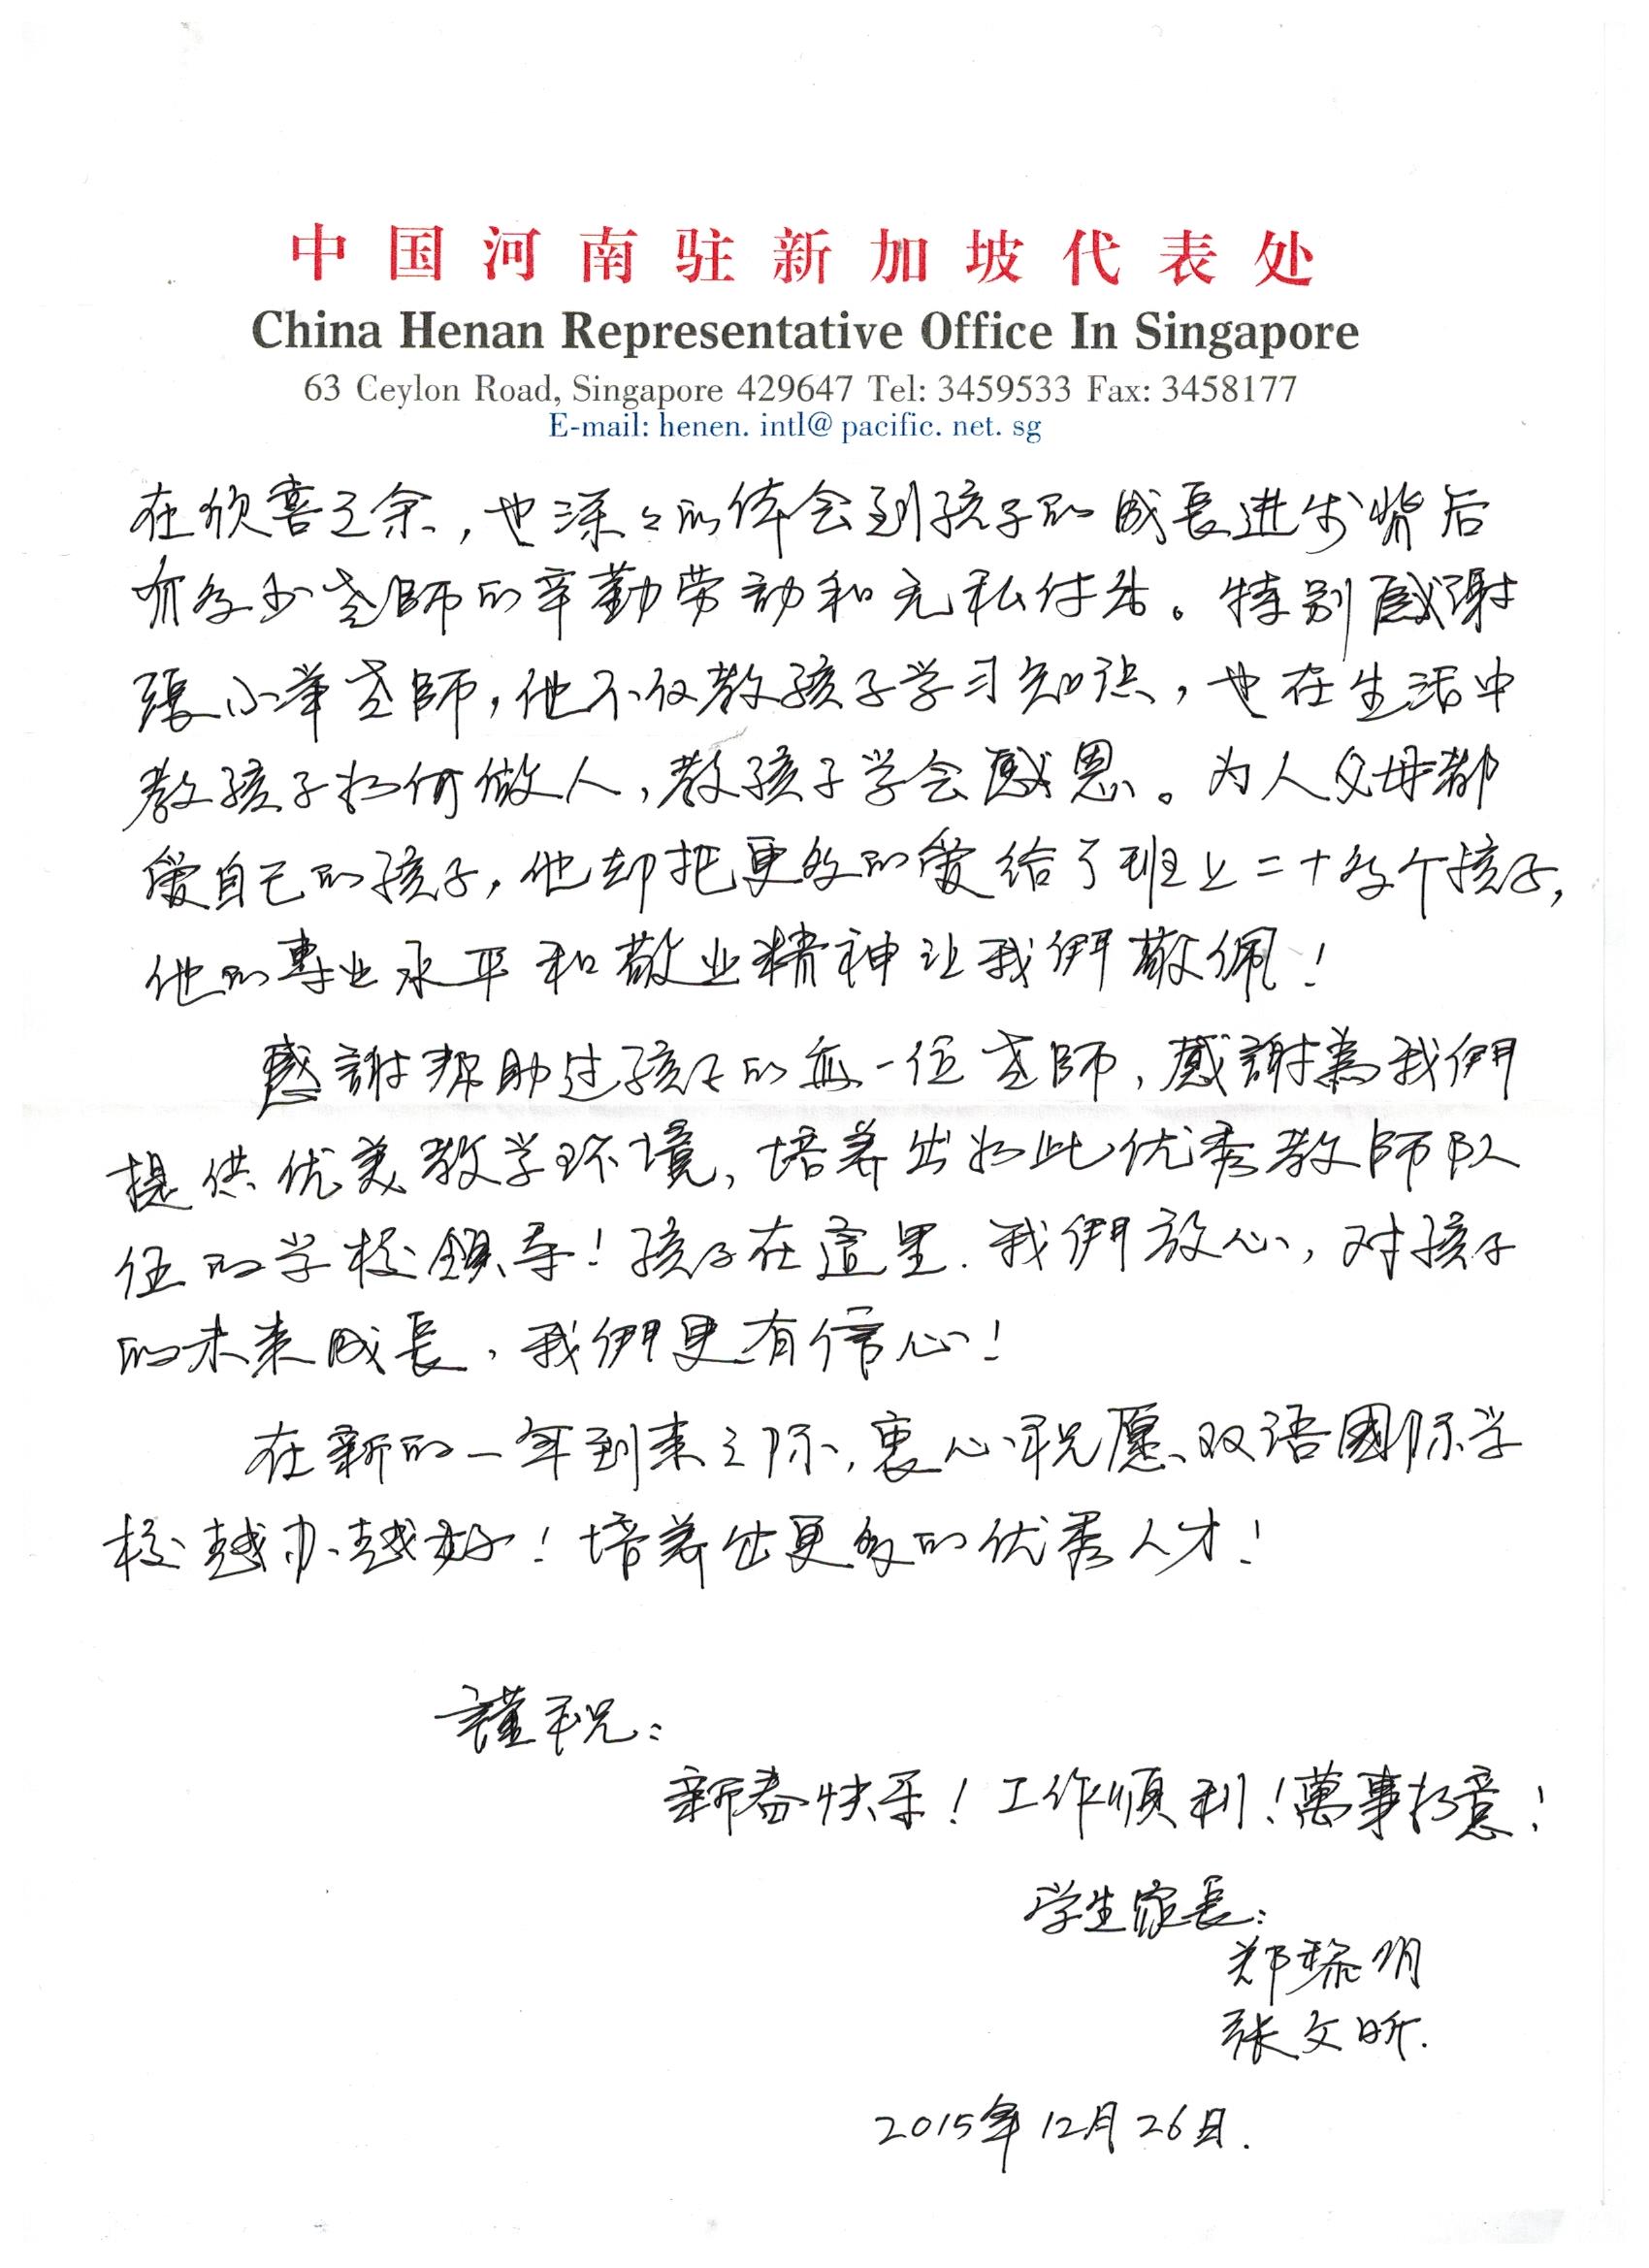 中国河南驻新加坡代表处
China Henan Representative Office In Singapore
63 Ceylon Road, Singapore 429647 Tel: 3459533 Fax: 3458177
E-mail: henen. intl@ pacific. net. sg
在欣喜之余，也深々的体会到孩子的成長进步背后
有多少老師的辛勤劳动和无私付出。特别感謝
張小举老師，他不仅教孩子学习知识，也在生活中
教孩子如何做人，教孩子学会感恩。为人父母都
愛自己的孩子，他却把更多的愛给了班上二十多个孩子，
他的專业水平和敬业精神让我們敬佩！
感謝帮助过孩子的每一位老師，感謝為我們
提供优美教学环境，培养出如此优秀教師队
伍的学校領导！孩子在這里．我們放心，对孩子
的未来成長，我們更有信心！
在新的一年到来之际，衷心祝愿双语國际学
校越办越好！培养出更多的优秀人才！
謹祝：
新春快乐！工作順利！萬事如意！
学生家長：
郑黎明
张文昕．
2015年12月26日．